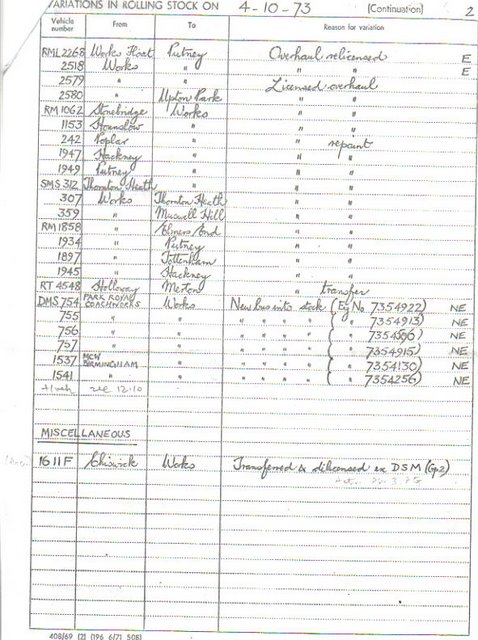 VARIATIONS IN ROLLING STOCK ON 4-10-73 (Continuation) 2
Vehicle number From To Reason for variation
RML 2268 Works Float Putney Overhaul relicensed E
2518 Works " " " E
2579 " " Licensed overhaul
2580 " Upton Park " "
RM 1062 Stonebridge Works " "
1153 Hounslow " " "
242 Poplar " " repaint
1947 Hackney " " "
1949 Putney " " "
SMS 312 Thornton Heath " " "
307 Works Thornton Heath " "
359 " Muswell Hill " "
RM 1858 " Elmers End " "
1934 " Putney " "
1897 " Tottenham " "
1945 " Hackney " "
RT 4548 Holloway Merton " transfer
DMS 754 PARK ROYAL COACHWORKS Works New bus into stock (Eg No 7354922) NE
755 " " " " " " ( " 7354913) NE
756 " " " " " " ( " ) NE
757 " " " " " " ( " 7354915) NE
1537 MCW BIRMINGHAM " " " " " ( " 7354130) NE
1541 " " " " " " ( " 7354256) NE
see 12.10
MISCELLANEOUS
1611F Chiswick Works Transferred & delicensed ex DSM (Gp2)
408/69 (2) (196 6/71 508)